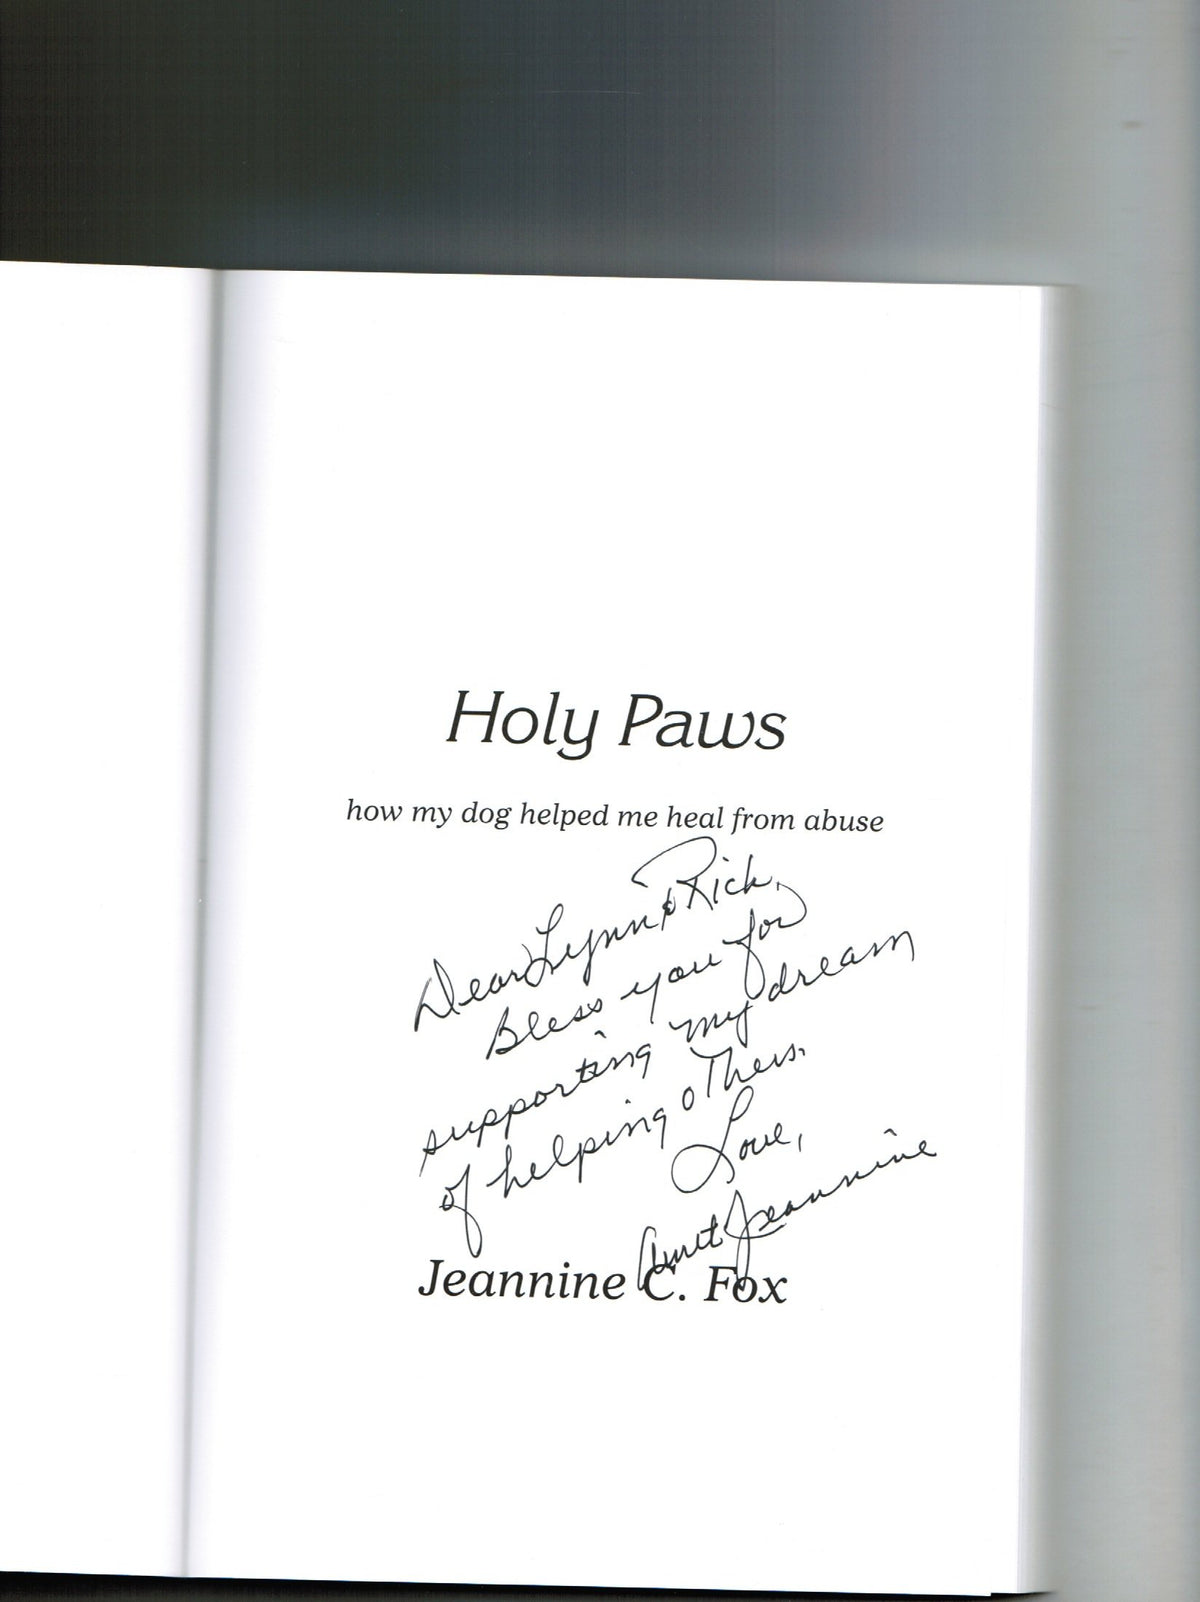 Holy Paws
how my dog helped me heal from abuse
Dear Lynn & Rich,
Bless you for
supporting my dream
of helping others.
Love,
Aunt Jeannine
Jeannine C. Fox